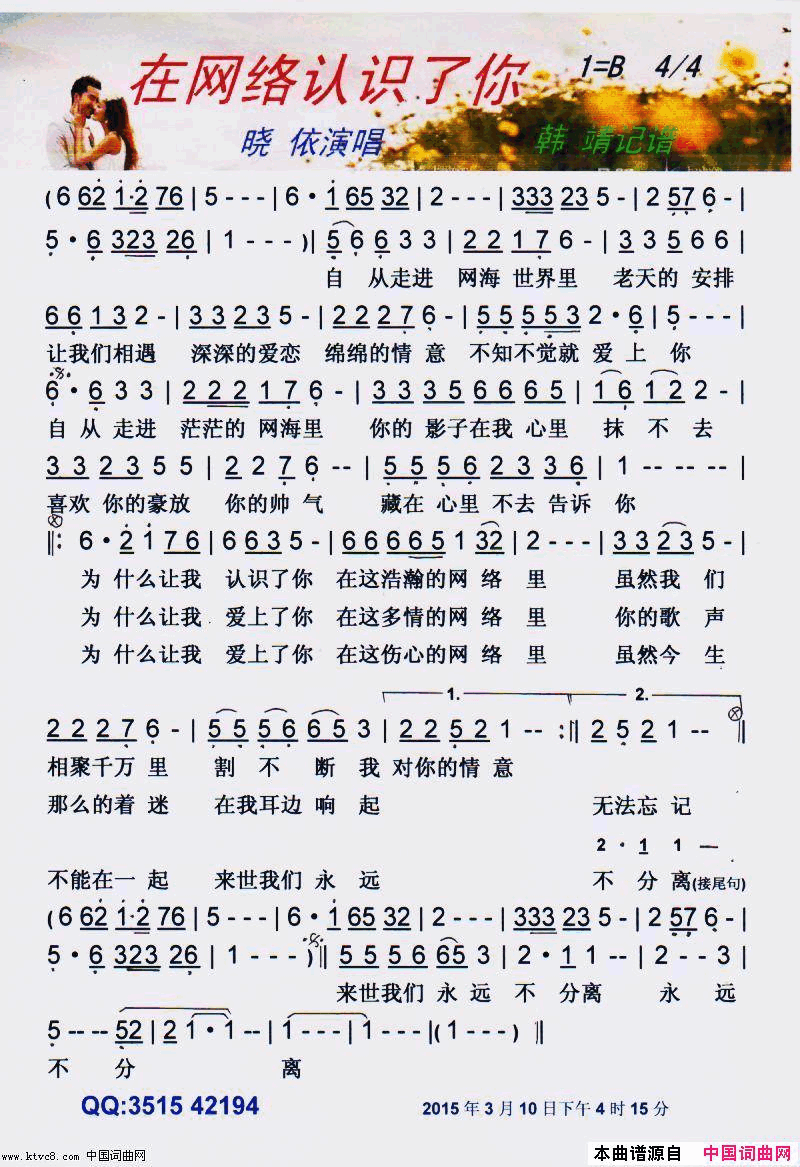 在网络认识了你 1=B 4/4
晓 依演唱 韩 靖记谱
( 6 62 1·2 76 | 5 - - - | 6 · 1 65 32 | 2 - - - | 333 23 5 - | 2 57 6 - |
5 · 6 323 26 | 1 - - - )‖ 5 6 6 3 3 | 2 2 1 7 6 - | 3 3 5 6 6 |
自 从走进 网海 世界里 老天的 安排
6 6 1 3 2 - | 3 3 2 3 5 - | 2 2 2 7 6 - | 5 5 5 5 3 2 · 6 | 5 - - - |
让我们相遇 深深的爱恋 绵绵的情 意 不知不觉就 爱 上 你
6 · 6 3 3 | 2 2 2 1 7 6 - | 3 3 3 5 6 6 5 | 1 6 1 2 2 - |
自 从 走进 茫茫的 网海里 你的 影子在我 心里 抹 不 去
3 3 2 3 5 5 | 2 2 7 6 - - | 5 5 5 6 2 3 3 6 | 1 - - - |
喜欢 你的豪放 你的帅 气 藏在 心里 不去 告诉 你
‖: 6 · 2 1 7 6 | 6 6 3 5 - | 6 6 6 6 6 5 1 32 | 2 - - - | 3 3 2 3 5 - |
为 什么让我 认识了你 在这浩瀚的网 络 里 虽然我 们
为 什么让我 爱上了你 在这多情的网 络 里 你的歌 声
为 什么让我 爱上了你 在这伤心的网 络 里 虽然今 生
1. 2.
2 2 2 7 6 - | 5 5 5 6 6 5 3 | 2 2 5 2 1 - - :‖ 2 5 2 1 - - ‖
相聚千万 里 割 不 断 我 对你的情 意
那么的着 迷 在我耳边 响 起 无法忘 记
2 · 1 1 —
不能在一 起 来世我们 永 远 不 分 离(接尾句)
( 6 62 1·2 76 | 5 - - - | 6 · 1 65 32 | 2 - - - | 333 23 5 - | 2 57 6 - |
5 · 6 323 26 | 1 - - - )‖ 5 5 5 6 65 3 | 2 · 1 1 - - | 2 - - 3 |
来世我们 永 远 不 分离 永 远
5 - - 52 | 2 1 · 1 | 1 - - - | 1 - - - | ( 1 - - ) ‖
不 分 离
QQ:3515 42194 2015 年 3 月 10 日下午 4 时 15 分
www.ktvc8.com 中国词曲网 本曲谱源自 中国词曲网